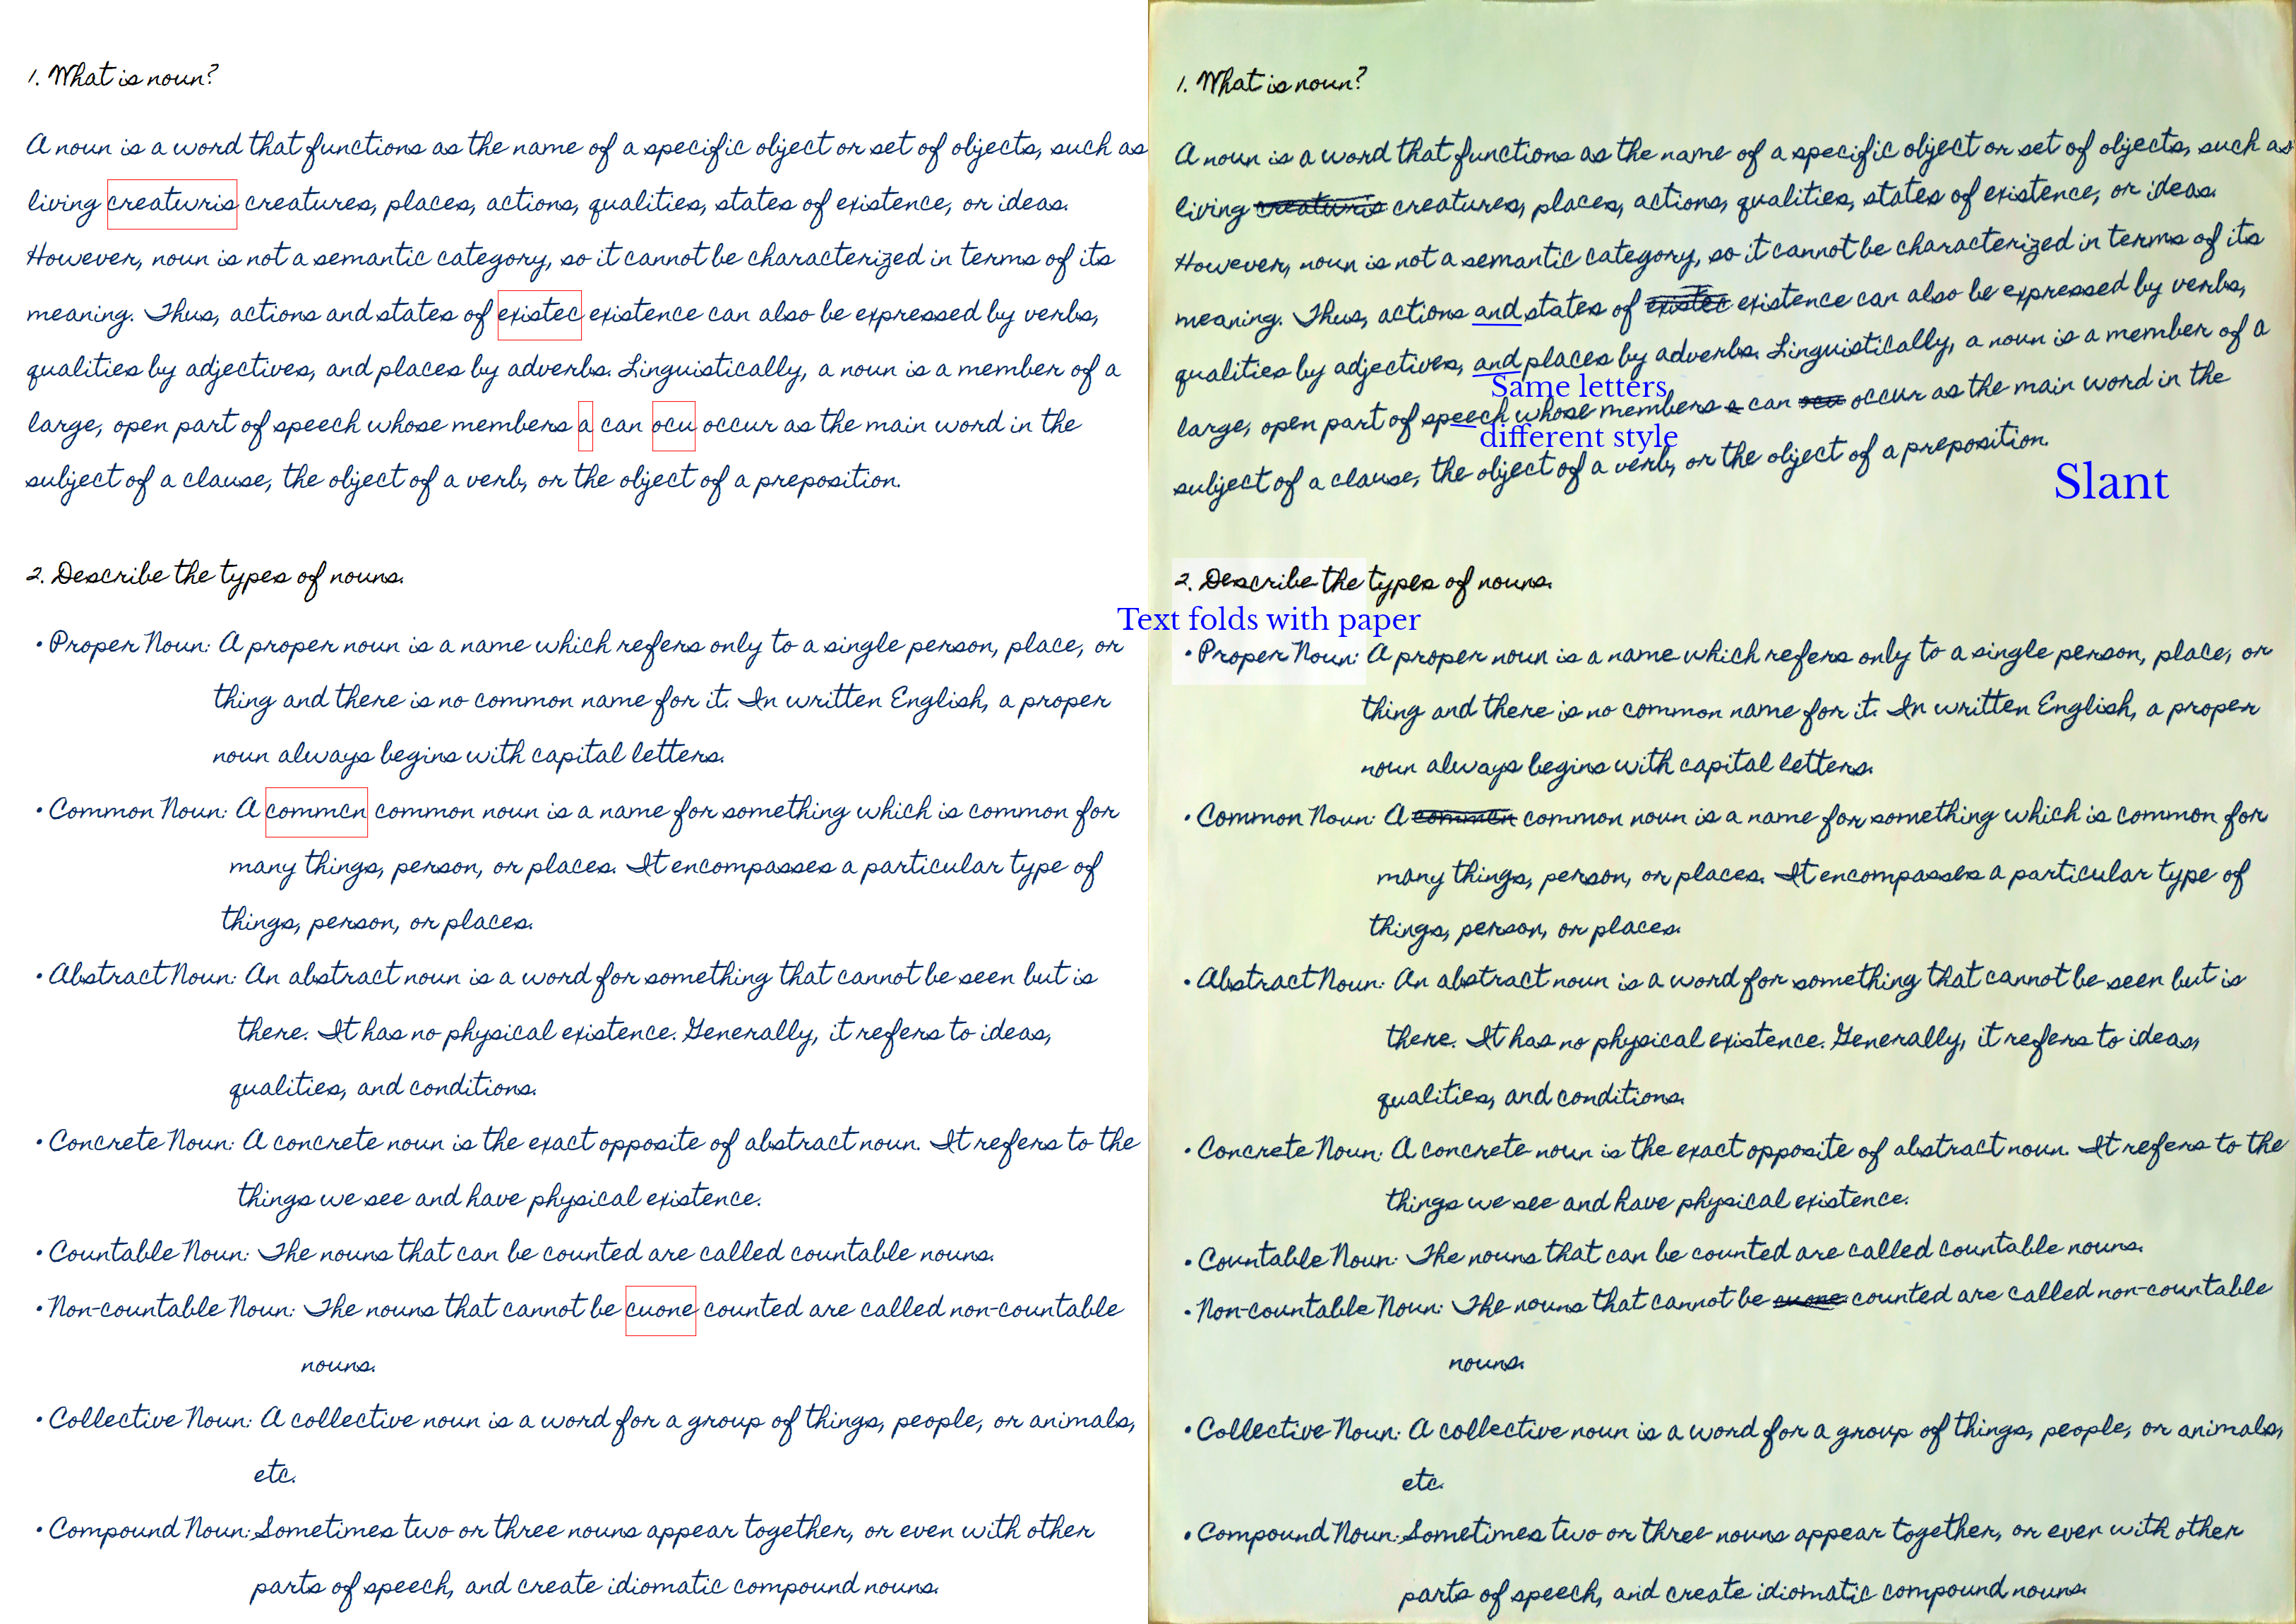 1. What is noun?
A noun is a word that functions as the name of a specific object or set of objects, such as
living creaturis creatures, places, actions, qualities, states of existence, or ideas.
However, noun is not a semantic category, so it cannot be characterized in terms of its
meaning. Thus, actions and states of existec existence can also be expressed by verbs,
qualities by adjectives, and places by adverbs. Linguistically, a noun is a member of a
large, open part of speech whose members a can ocu occur as the main word in the
subject of a clause, the object of a verb, or the object of a preposition.
2. Describe the types of nouns.
• Proper Noun: A proper noun is a name which refers only to a single person, place, or
thing and there is no common name for it. In written English, a proper
noun always begins with capital letters.
• Common Noun: A commcn common noun is a name for something which is common for
many things, person, or places. It encompasses a particular type of
things, person, or places.
• Abstract Noun: An abstract noun is a word for something that cannot be seen but is
there. It has no physical existence. Generally, it refers to ideas,
qualities, and conditions.
• Concrete Noun: A concrete noun is the exact opposite of abstract noun. It refers to the
things we see and have physical existence.
• Countable Noun: The nouns that can be counted are called countable nouns.
• Non-countable Noun: The nouns that cannot be cuone counted are called non-countable
nouns.
• Collective Noun: A collective noun is a word for a group of things, people, or animals,
etc.
• Compound Noun: Sometimes two or three nouns appear together, or even with other
parts of speech, and create idiomatic compound nouns.
1. What is noun?
A noun is a word that functions as the name of a specific object or set of objects, such as
living creaturis creatures, places, actions, qualities, states of existence, or ideas.
However, noun is not a semantic category, so it cannot be characterized in terms of its
meaning. Thus, actions and states of existec existence can also be expressed by verbs,
qualities by adjectives, and places by adverbs. Linguistically, a noun is a member of a
Same letters
large, open part of speech whose members a can ocu occur as the main word in the
different style
subject of a clause, the object of a verb, or the object of a preposition.
Slant
2. Describe the types of nouns.
Text folds with paper
• Proper Noun: A proper noun is a name which refers only to a single person, place, or
thing and there is no common name for it. In written English, a proper
noun always begins with capital letters.
• Common Noun: A commcn common noun is a name for something which is common for
many things, person, or places. It encompasses a particular type of
things, person, or places.
• Abstract Noun: An abstract noun is a word for something that cannot be seen but is
there. It has no physical existence. Generally, it refers to ideas,
qualities, and conditions.
• Concrete Noun: A concrete noun is the exact opposite of abstract noun. It refers to the
things we see and have physical existence.
• Countable Noun: The nouns that can be counted are called countable nouns.
• Non-countable Noun: The nouns that cannot be cuone counted are called non-countable
nouns.
• Collective Noun: A collective noun is a word for a group of things, people, or animals,
etc.
• Compound Noun: Sometimes two or three nouns appear together, or even with other
parts of speech, and create idiomatic compound nouns.